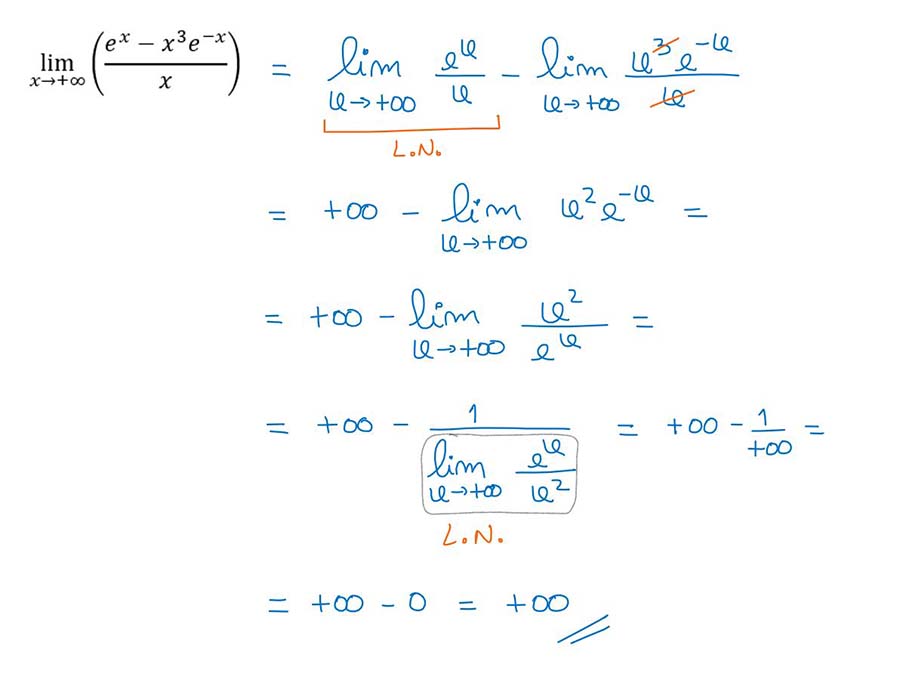 lim x→+∞ ((e^x − x³e^−x)/x) = lim x→+∞ e^x/x − lim x→+∞ x³e^−x/x
L.N.
= +∞ − lim x→+∞ x²e^−x =
= +∞ − lim x→+∞ x²/e^x =
= +∞ − 1/(lim x→+∞ e^x/x²) = +∞ − 1/+∞ =
L.N.
= +∞ − 0 = +∞